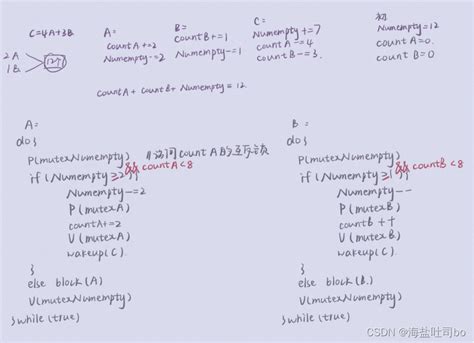 C=4A+3B
A=
countA+=2
Numempty-=2
B=
countB+=1
Numempty-=1
C=
Numempty+=7
countA-=4
countB-=3.
初
Numempty=12
countA=0.
countB=0
2A
1B
12个
countA+countB+Numempty=12
A=
do{
P(mutexNumempty) //访问countAB的互斥
if(Numempty≥2){ && countA<8
Numempty-=2
P(mutexA)
countA+=2
V(mutexA)
wakeup(C)
}
else block(A)
V(mutexNumempty)
}while(true)
B=
do{
P(mutexNumempty)
if(Numempty≥1){ && countB<8
Numempty--
P(mutexB)
countB++
V(mutexB)
wakeup(C)
}
else block(B)
V(mutexNumempty)
}while(true)
CSDN @海盐吐司bo